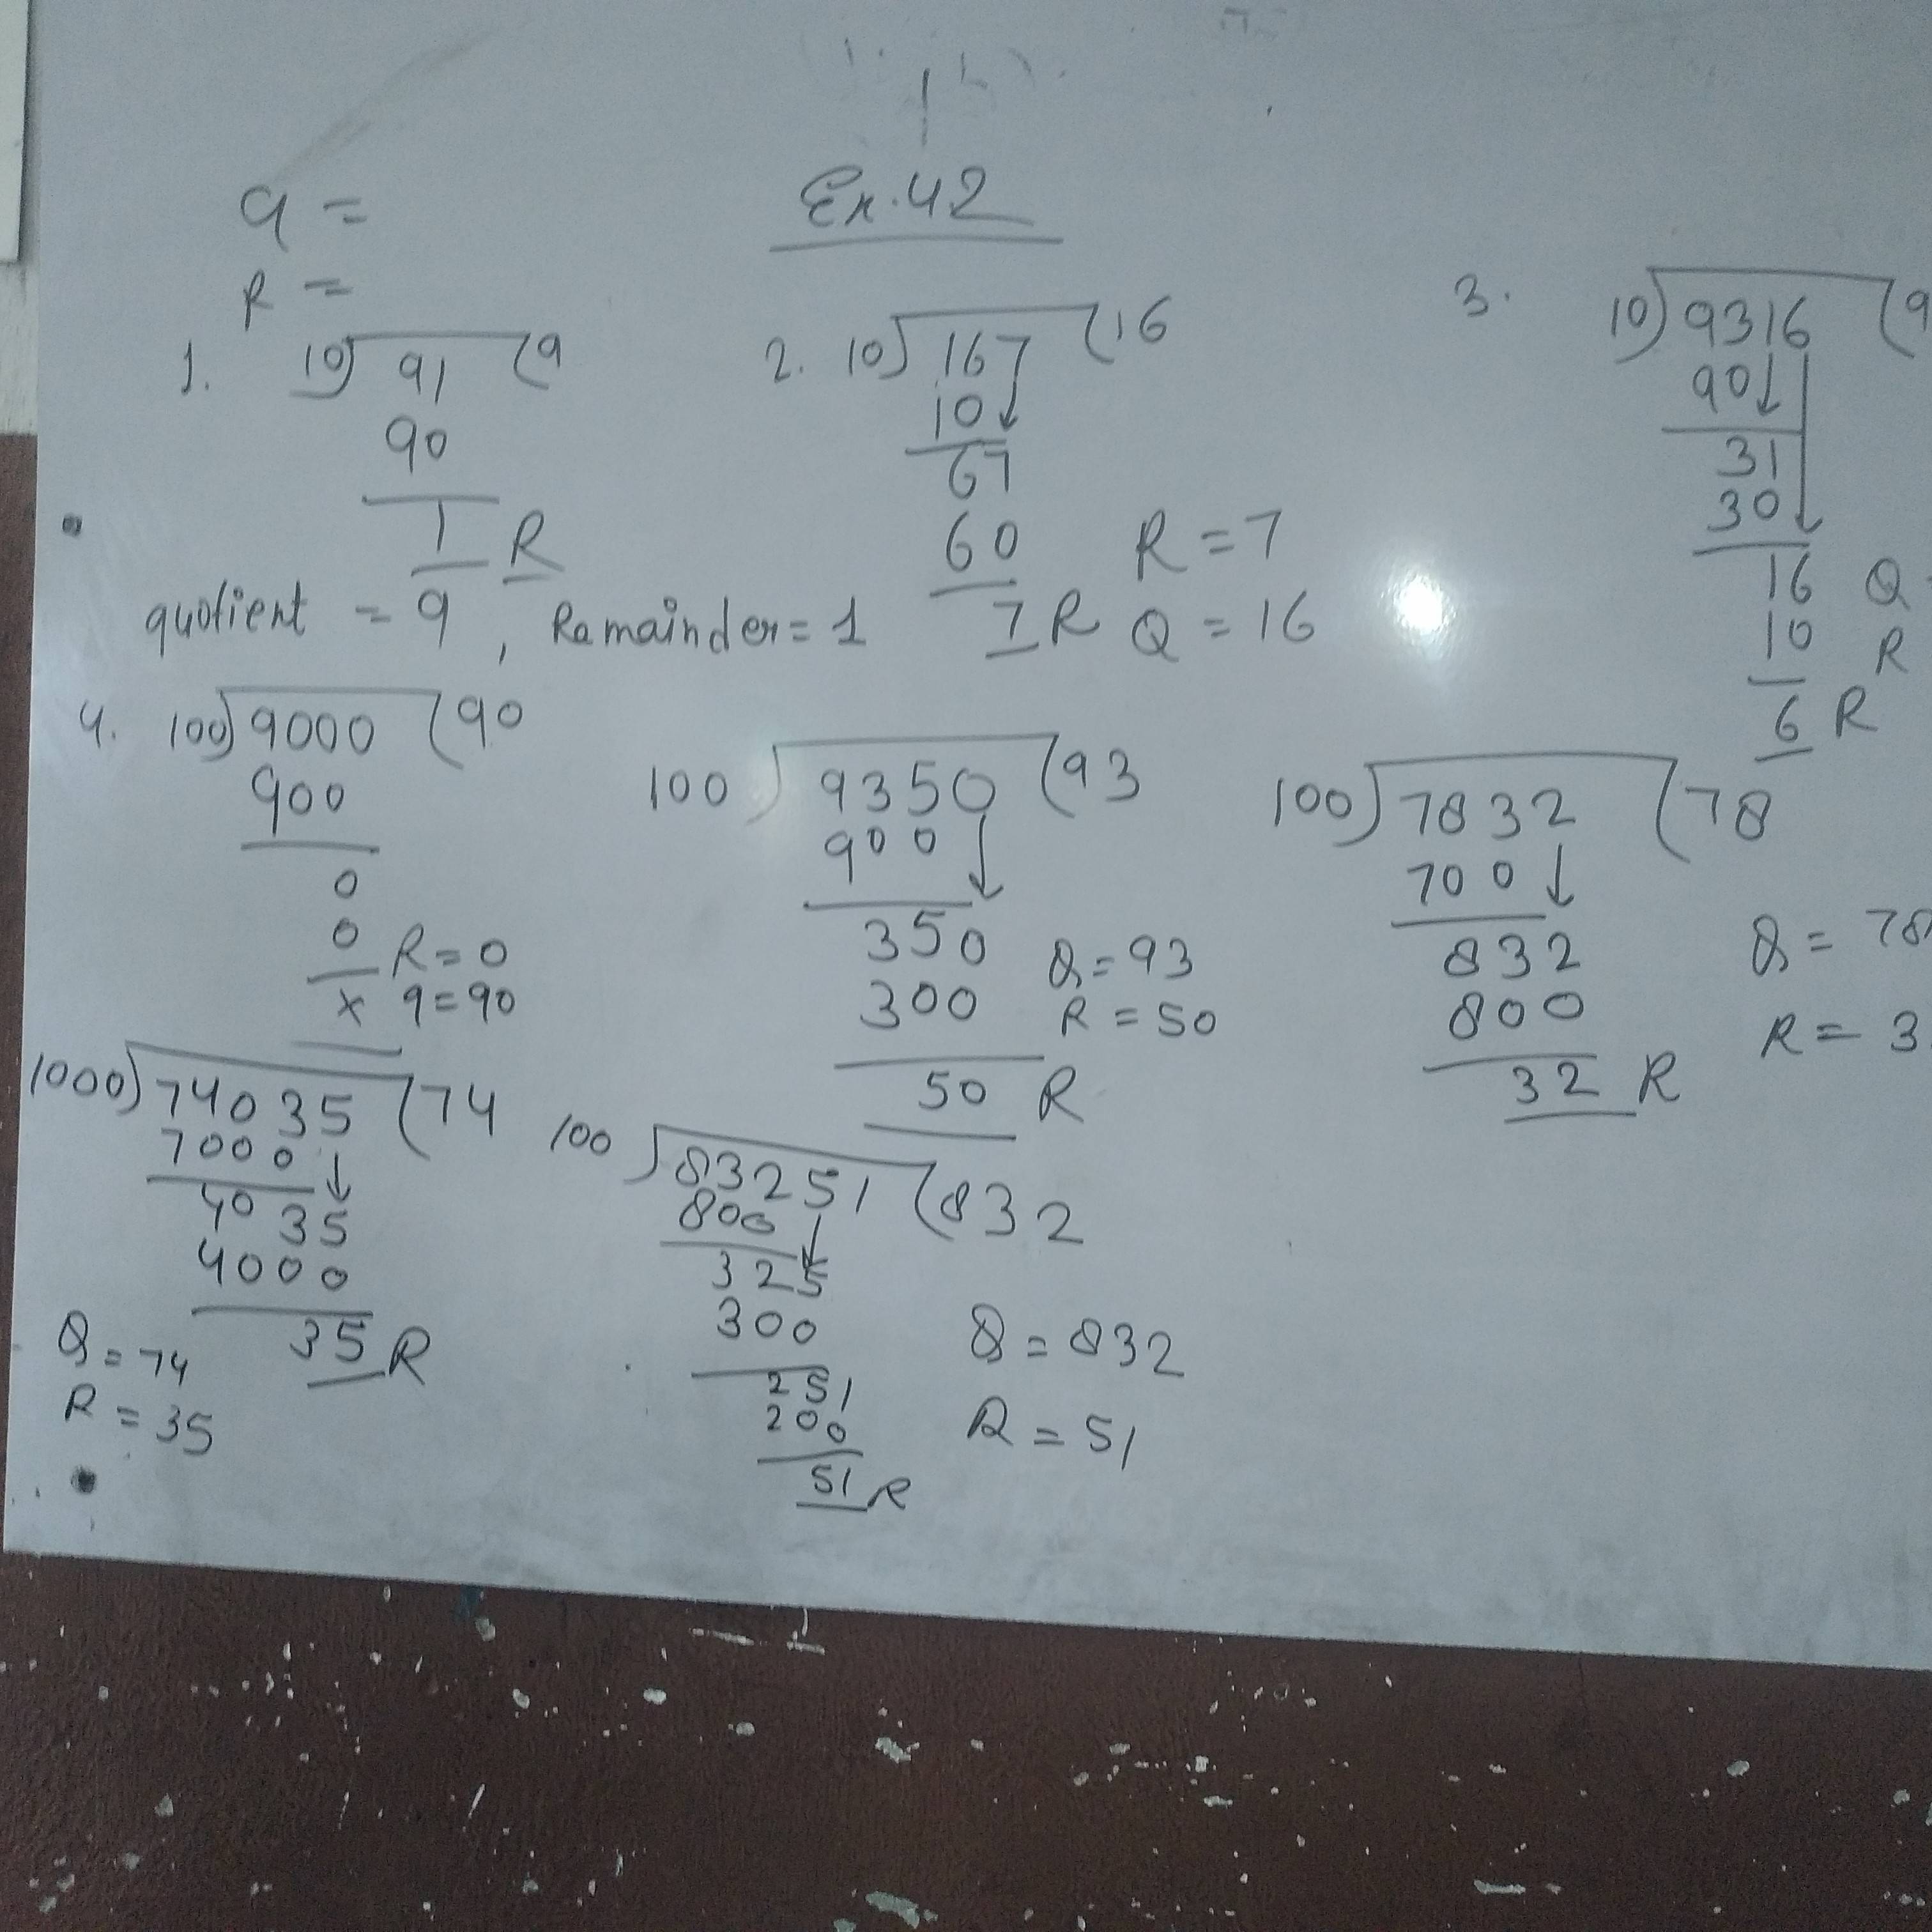 Ex.42
q =
R =
1. 10) 91 (9
90
1 R
quotient = 9, Remainder = 1
2. 10) 167 (16
10
67
60
7 R
R = 7
Q = 16
3. 10) 9316 (9
90
31
30
16
10
6 R
Q
R
4. 100) 9000 (90
900
0
0
x
R = 0
q = 90
100) 9350 (93
900
350
300
50 R
Q = 93
R = 50
100) 7832 (78
700
832
800
32 R
Q = 78
R = 3
1000) 74035 (74
7000
4035
4000
35 R
Q = 74
R = 35
100) 83251 (832
800
325
300
251
200
51 R
Q = 832
R = 51